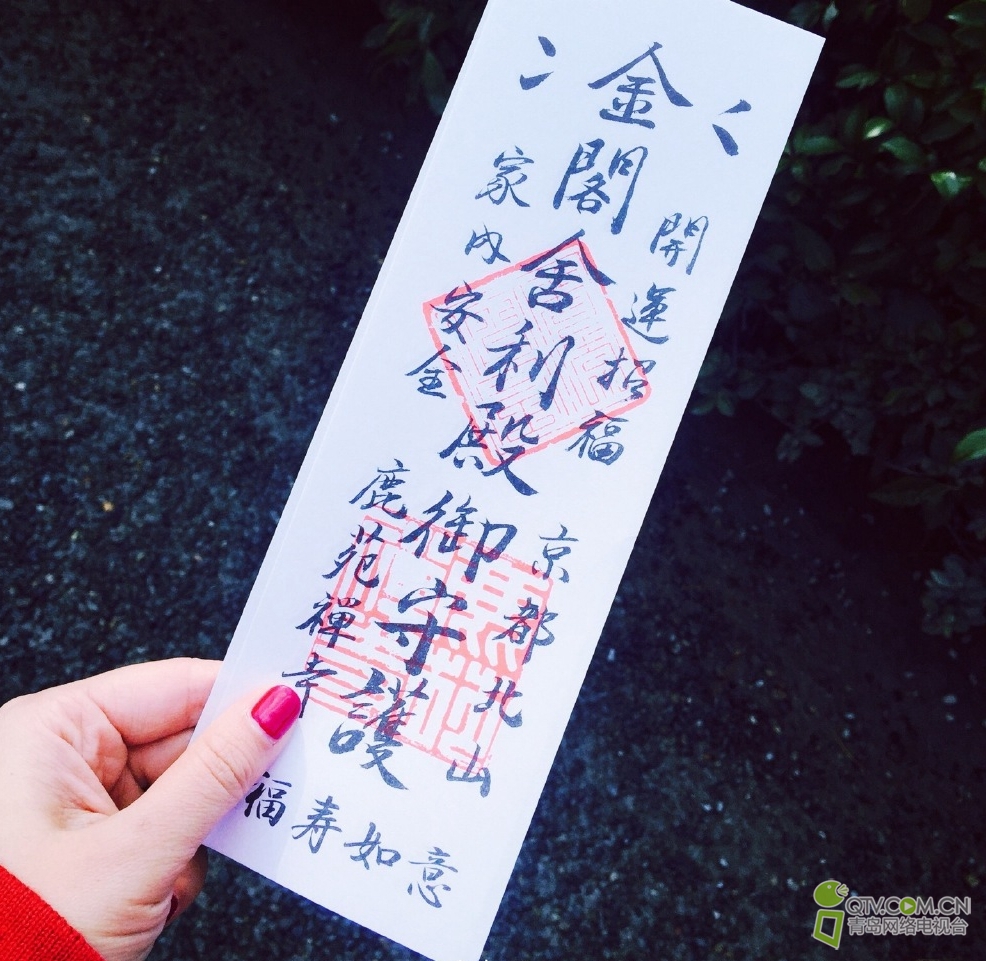 金閣舍利殿御守護
開運招福
京都北山
家内安全
鹿苑禅寺
福寿如意
QTV.COM.CN
青岛网络电视台